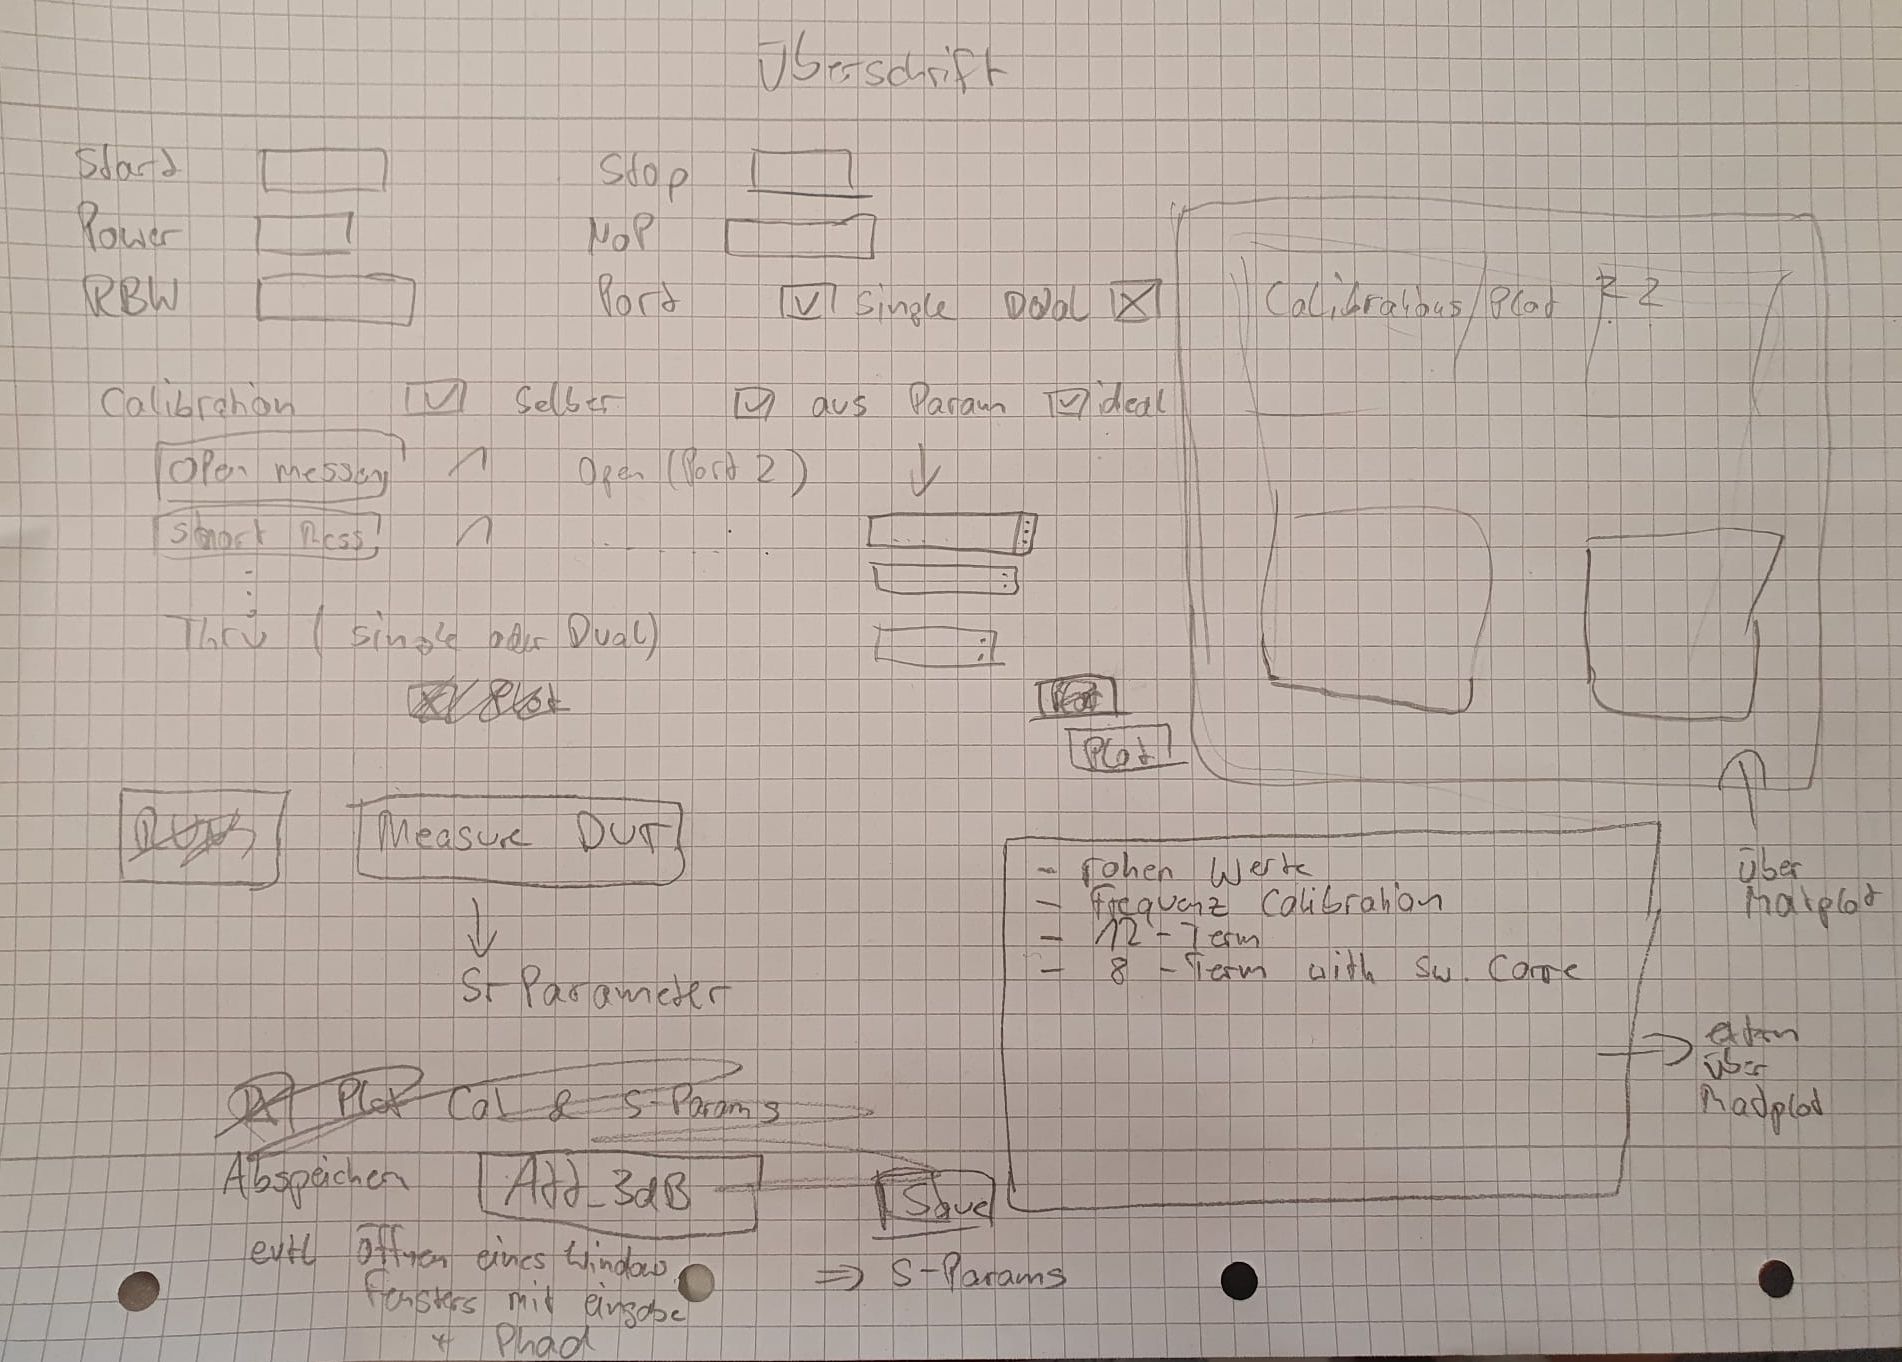 Überschrift
Start Stop
Power NoP
RBW Port Single Dual
Calibrations/Plot ? ?
Calibration Selber aus Param ideal
Open messen Open (Port 2)
Short Mess
Thru (single oder Dual)
Plot
Measure DUT
- rohen Werte
- Frequenz Calibration
- 12-Term
- 8-Term with Sw. Corre
über
Matplot
S-Parameter
extern
über
Matplot
Plot Cal & S-Params
Abspeichen Add_3dB Save
evtl Öffnen eines Window
Fensters mit eingabe
+ Phad
⇒ S-Params